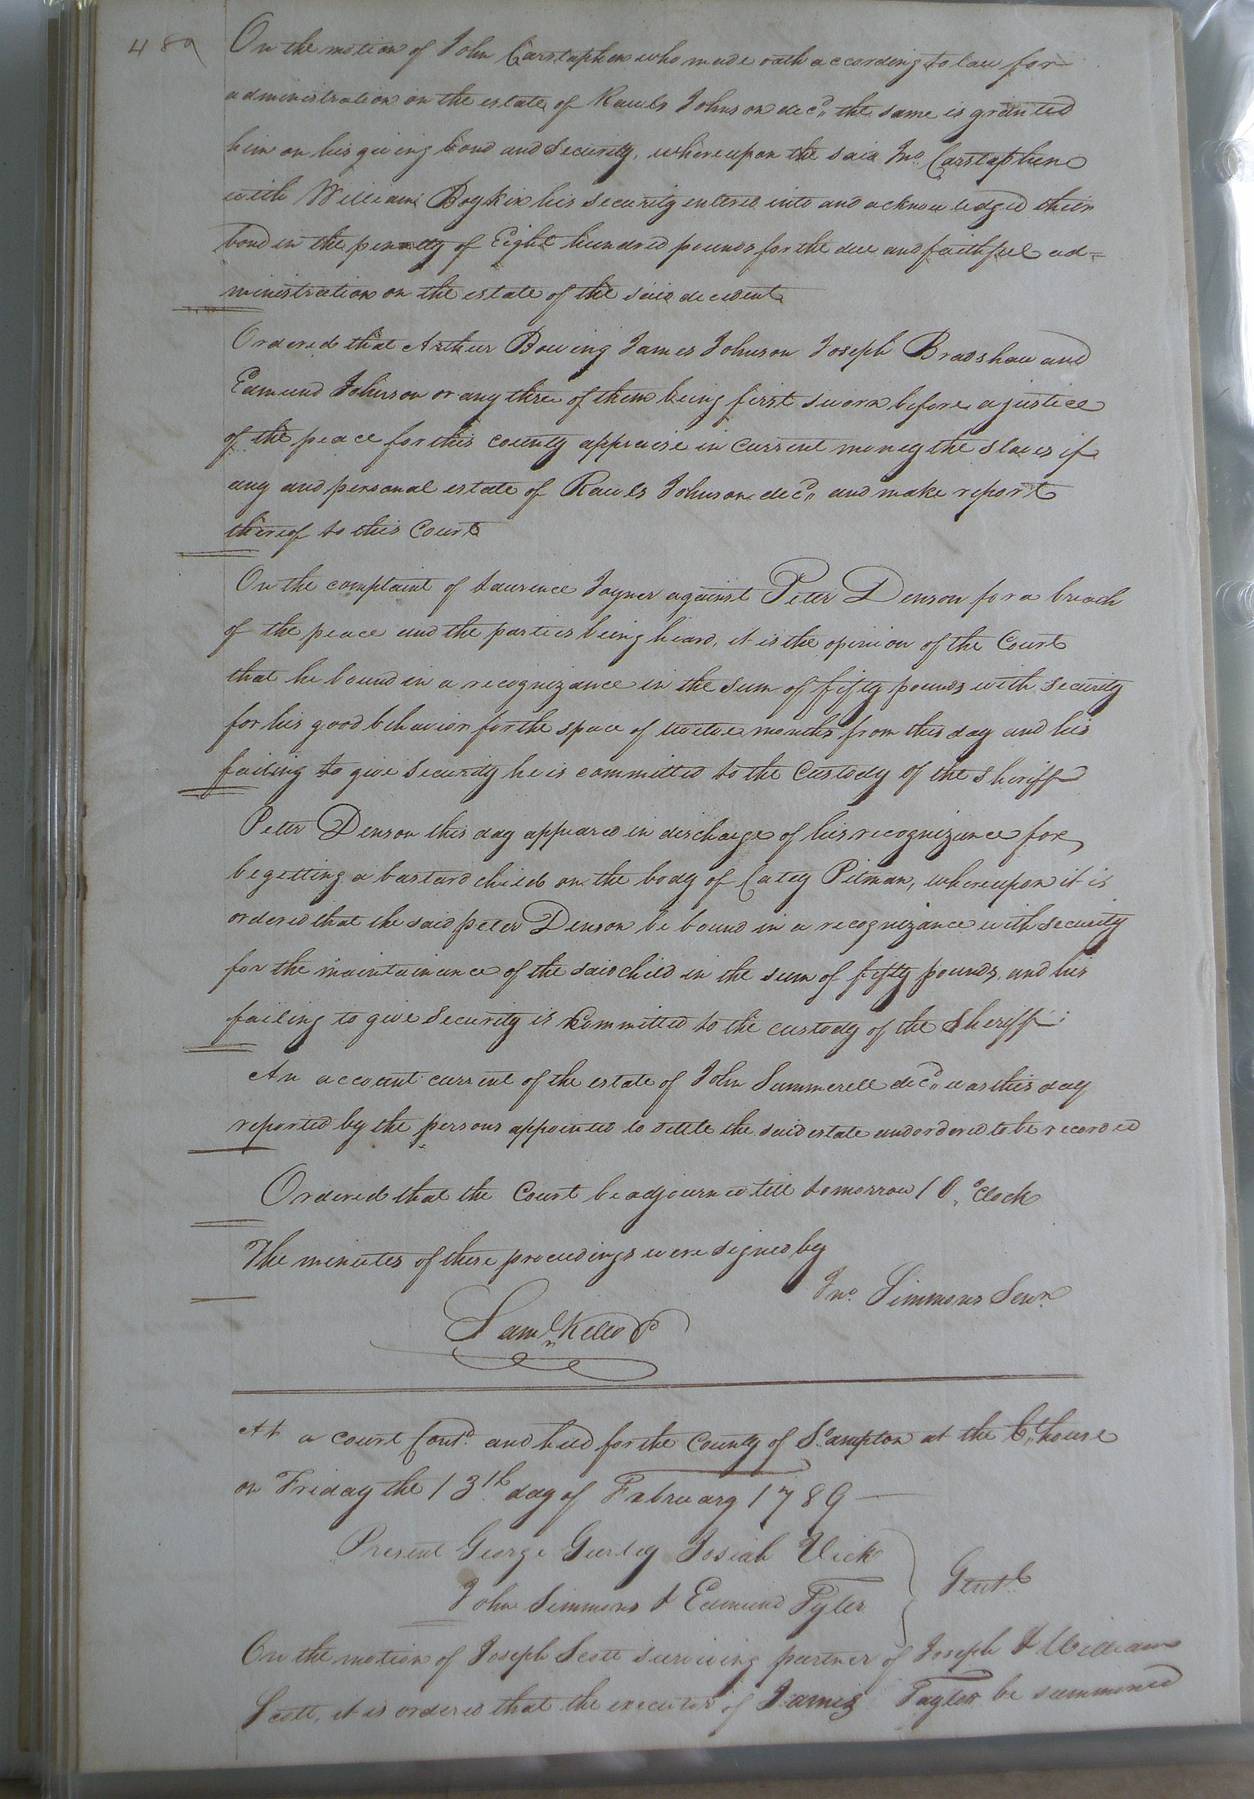 489
On the motion of John Carstaphen who made oath according to law for
administration on the estate of Rawls Johnson decd. the same is granted
him on his giving bond and security, whereupon the said Jno. Carstaphen
with William Boykin his security entered into and acknowledged their
bond in the penalty of Eight hundred pounds for the due and faithful ad=
ministration on the estate of the said decedent
Ordered that Arthur Bowing James Johnson Joseph Bradshaw and
Edmund Johnson or any three of them being first sworn before a justice
of the peace for this county appraise in current money the slaves if
any and personal estate of Rawls Johnson decd. and make report
thereof to this Court
On the complaint of Laurence Joyner against Peter Denson for a breach
of the peace and the parties being heard, it is the opinion of the Court
that he bound in a recognizance in the sum of fifty pounds with security
for his good behavior for the space of twelve months from this day and his
failing to give security he is committed to the custody of the Sheriff
Peter Denson this day appeared in discharge of his recognizance for
begetting a bastard child on the body of Catey Pitman, whereupon it is
ordered that the said Peter Denson be bound in a recognizance with security
for the maintainance of the said child in the sum of fifty pounds, and his
failing to give security is committed to the custody of the Sheriff
An account current of the estate of John Summerell decd. was this day
reported by the persons appointed to settle the said estate and ordered to be recorded
Ordered that the Court be adjourned till tomorrow 10 oClock
The minutes of these proceedings were signed by
Jno. Simmons Senr.
Saml. Kello
At a court Contd. and held for the County of So.ampton at the Ct. house
on Friday the 13th day of February 1789
Present George Gurley Josiah Vick
John Simmons & Edmund Tyler
Gentl.
On the motion of Joseph Scott surviving partner of Joseph & William
Scott, it is ordered that the executor of James Taylor be summoned